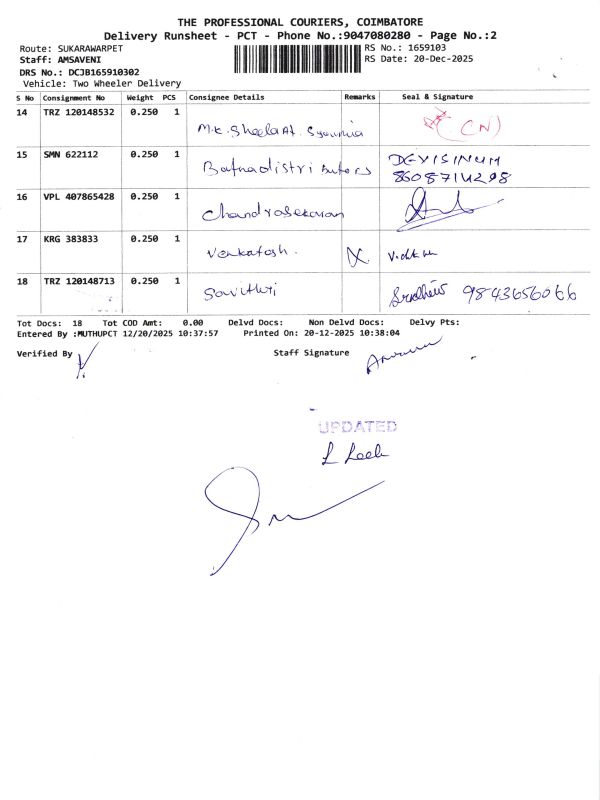 THE PROFESSIONAL COURIERS, COIMBATORE
Delivery Runsheet - PCT - Phone No.:9047080280 - Page No.:2
Route: SUKARAWARPET RS No.: 1659103
Staff: AMSAVENI RS Date: 20-Dec-2025
DRS No.: DCJB165910302
Vehicle: Two Wheeler Delivery
S No Consignment No Weight PCS Consignee Details Remarks Seal & Signature
14 TRZ 120148532 0.250 1 M.K. Sheela (CN)
15 SMN 622112 0.250 1 Bafnadistributors DEVISINUM
8608714298
16 VPL 407865428 0.250 1 Chandrasekaran
17 KRG 383833 0.250 1 Venkatash.
18 TRZ 120148713 0.250 1 Savithri 9843656066
Tot Docs: 18 Tot COD Amt: 0.00 Delvd Docs: Non Delvd Docs: Delvy Pts:
Entered By :MUTHUPCT 12/20/2025 10:37:57 Printed On: 20-12-2025 10:38:04
Verified By Staff Signature
UPDATED